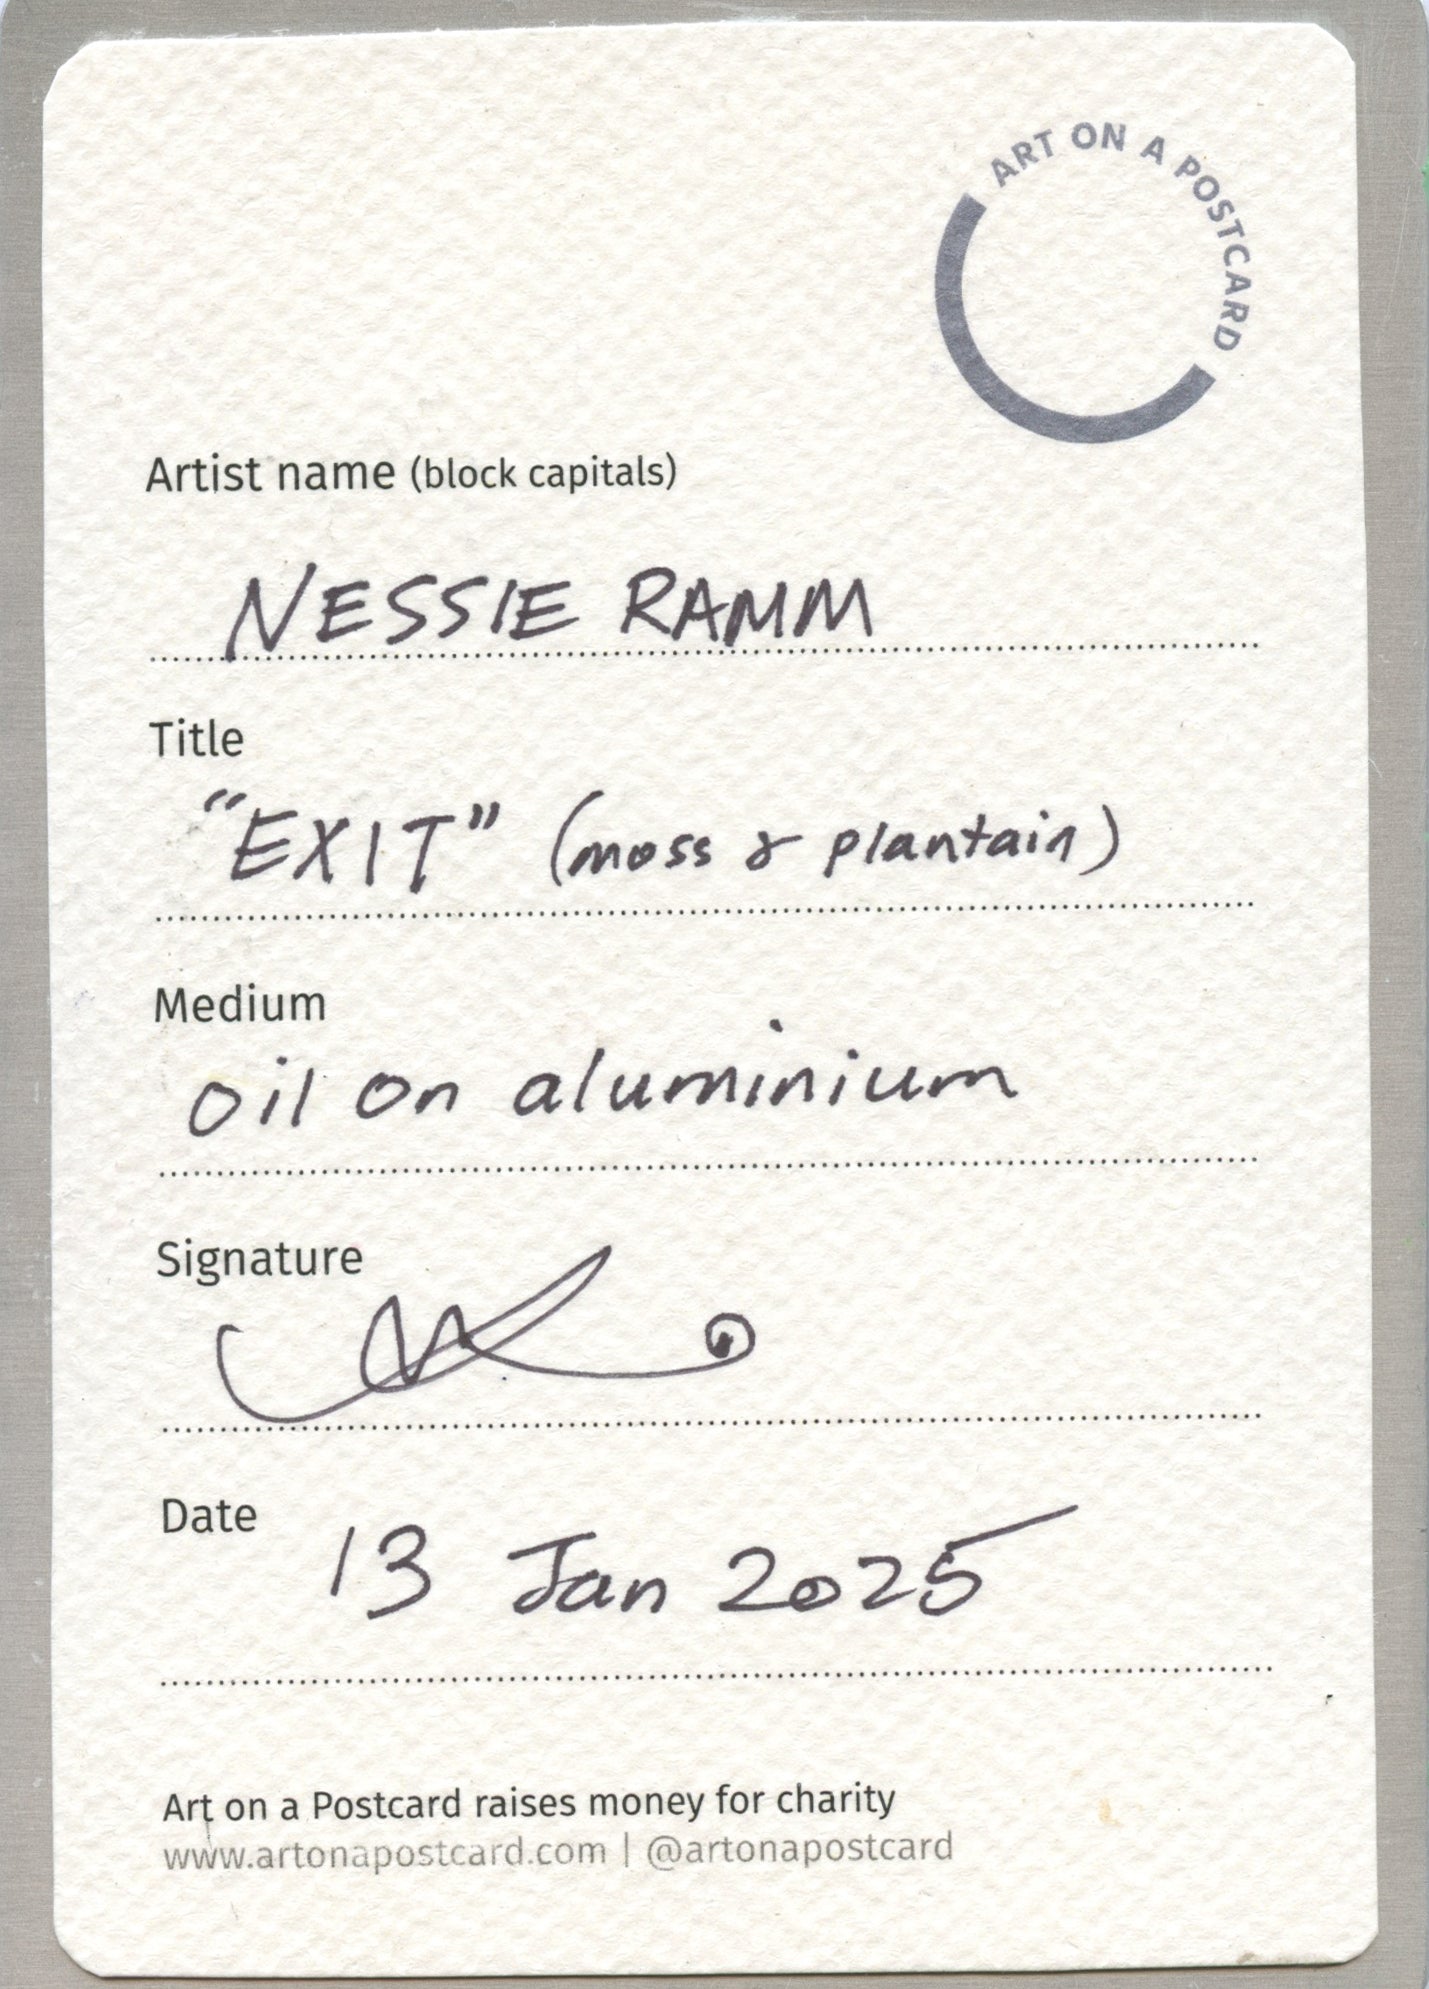 ART ON A POSTCARD
Artist name (block capitals)
NESSIE RAMM
Title
"EXIT" (moss & plantain)
Medium
oil on aluminium
Signature
Date
13 Jan 2025
Art on a Postcard raises money for charity
www.artonapostcard.com | @artonapostcard